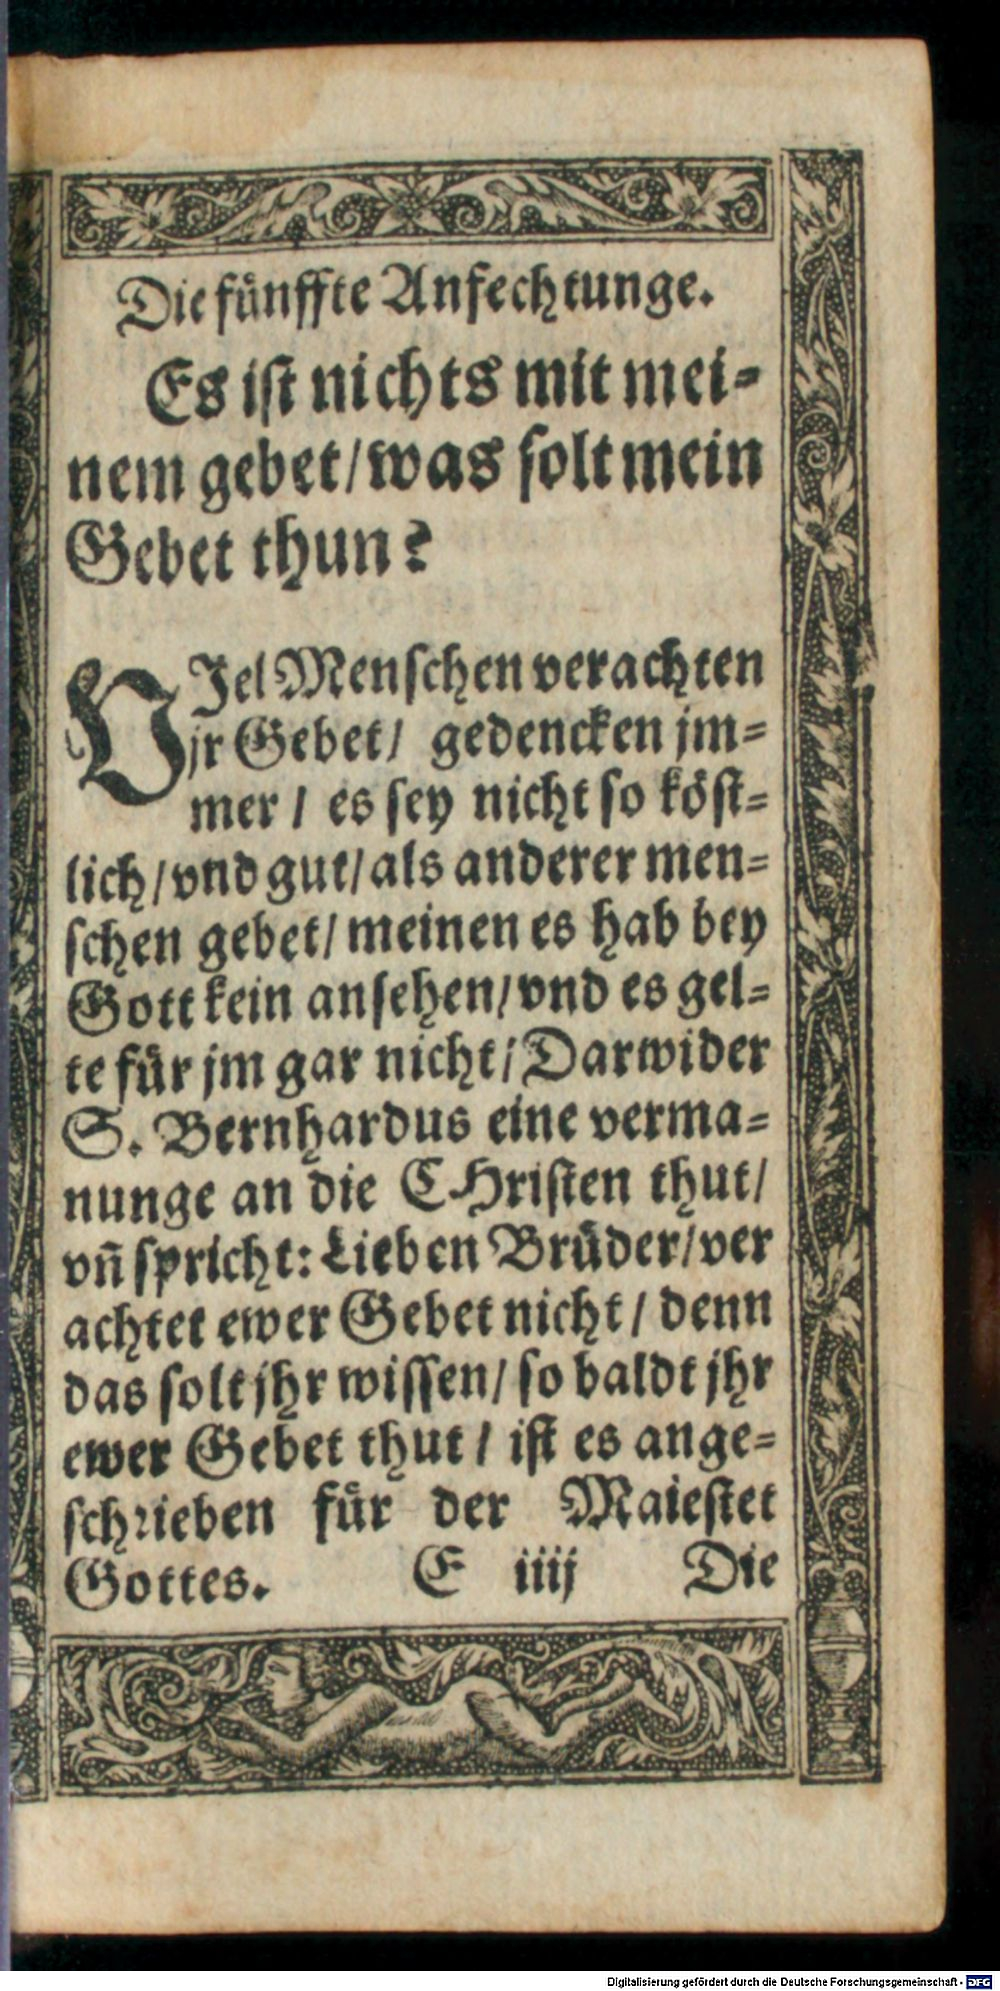 Die fünffte Anfechtunge.
Es ist nichts mit mei-
nem gebet/was solt mein
Gebet thun?
VJel Menschen verachten
jr Gebet/ gedencken jm-
mer / es sey nicht so köst-
lich/vnd gut/als anderer men-
schen gebet/meinen es hab bey
Gott kein ansehen/vnd es gel-
te für jm gar nicht/Darwider
S. Bernhardus eine verma-
nunge an die CHristen thut/
vñ spricht: Lieben Brüder/ver
achtet ewer Gebet nicht/ denn
das solt jhr wissen/so baldt jhr
ewer Gebet thut / ist es ange-
schrieben für der Maiestet
Gottes. E iiij Die
Digitalisierung gefördert durch die Deutsche Forschungsgemeinschaft - DFG